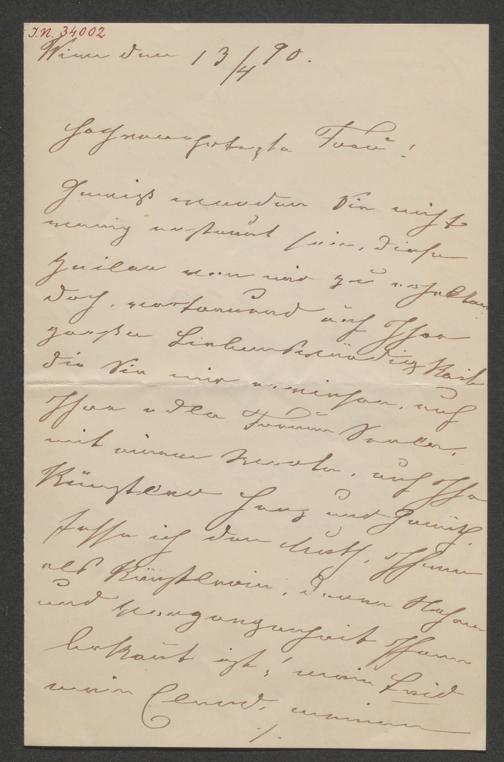 I.N. 34002
Wien den 13/4 90.
Hochverehrteste Frau!
Gewiss werden Sie nicht
wenig erstaunt sein, diese
Zeilen von mir zu erhalten
doch, vertrauend auf Ihre
große Liebenswürdigkeit
die Sie mir erwiesen, auf
Ihre edle Frauen Seele,
mit einem Worte, auf Ihr
Künstler Herz und Gemüth,
fasse ich den Muth, Ihnen
als Künstlerin, deren Name
und Vergangenheit Ihnen
bekannt ist, mein Leid
mein Elend, meinen
./.